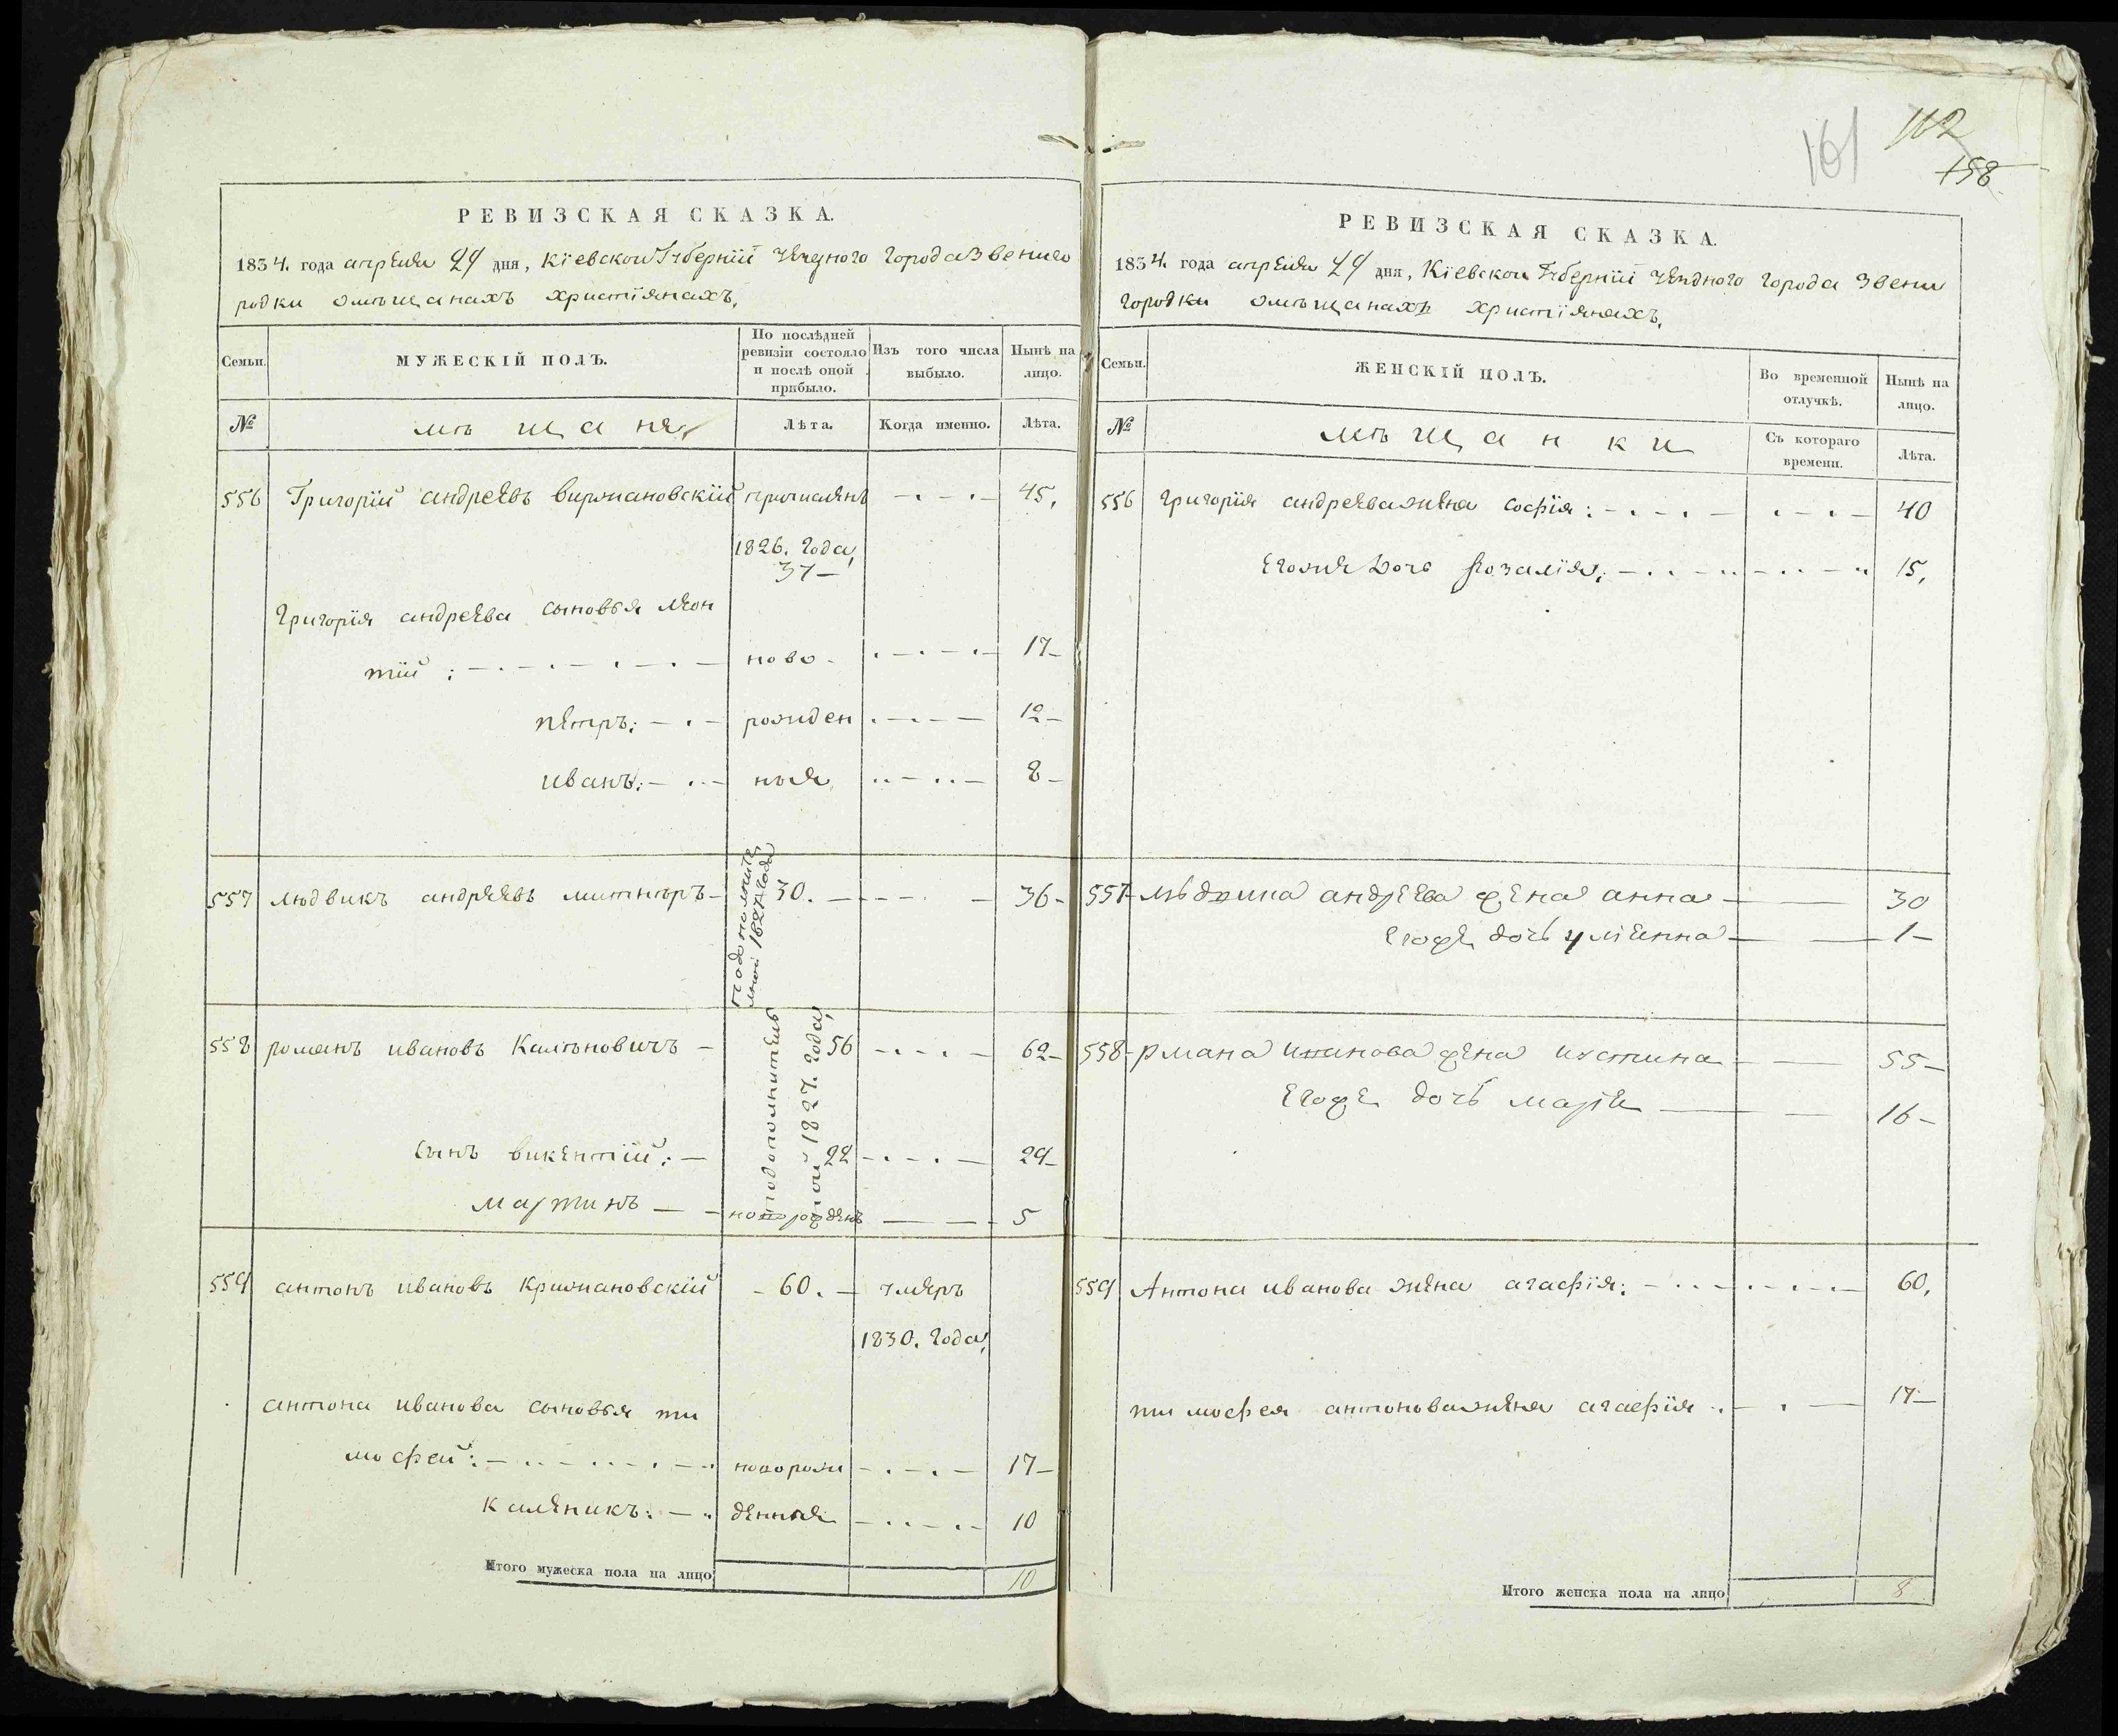 161
112
158
РЕВИЗСКАЯ СКАЗКА.
1834. года апреля 29 дня, Кіевской Губерніи уезднаго города Звениго
родки омѣщанахъ христіянахъ.
Семьи.
МУЖЕСКІЙ ПОЛЪ.
По послѣдней ревизіи состояло и послѣ оной прибыло.
Изъ того числа выбыло.
Нынѣ на лицо.
№
мѣщане
Лѣта.
Когда именно.
Лѣта.
556 Григорій андреевъ виржановскій причисленъ 45.
1826. года
37
Григорія андреева сыновья леон
тій: ново 17
петръ: рожден 12
иванъ: ныя 8
557 людвикъ андреевъ митнеръ 30. 36
подополните
льной 1827 года
558 романъ ивановъ Калѣновичъ 56 62
подополнитель
ной 1827. года
сынъ викентій: 22 29
мартинъ новорожденъ 5
559 антонъ ивановъ кржановскій 60. умеръ
1830. года
антона иванова сыновья ти
мофей: новорож 17
каленикъ: денныя 10
Итого мужеска пола на лицо 10
РЕВИЗСКАЯ СКАЗКА.
1834. года апреля 29 дня, Кіевской Губерніи уездного города Звени
городки омѣщанахъ христіянахъ.
Семьи.
ЖЕНСКІЙ ПОЛЪ.
Во временной отлучкѣ.
Нынѣ на лицо.
№
мѣщанки
Съ котораго времени.
Лѣта.
556 григорія андреева жена софія: 40
егоже дочь Розалія: 15.
557 андреева жена анна 30
Егоже дочь 1
558 рмана иванова жена иустина 55
Егоже дочь марія 16
559 Антона иванова жена агафія: 60.
тимофея антонова жена агафія 17
Итого женска пола на лицо 8